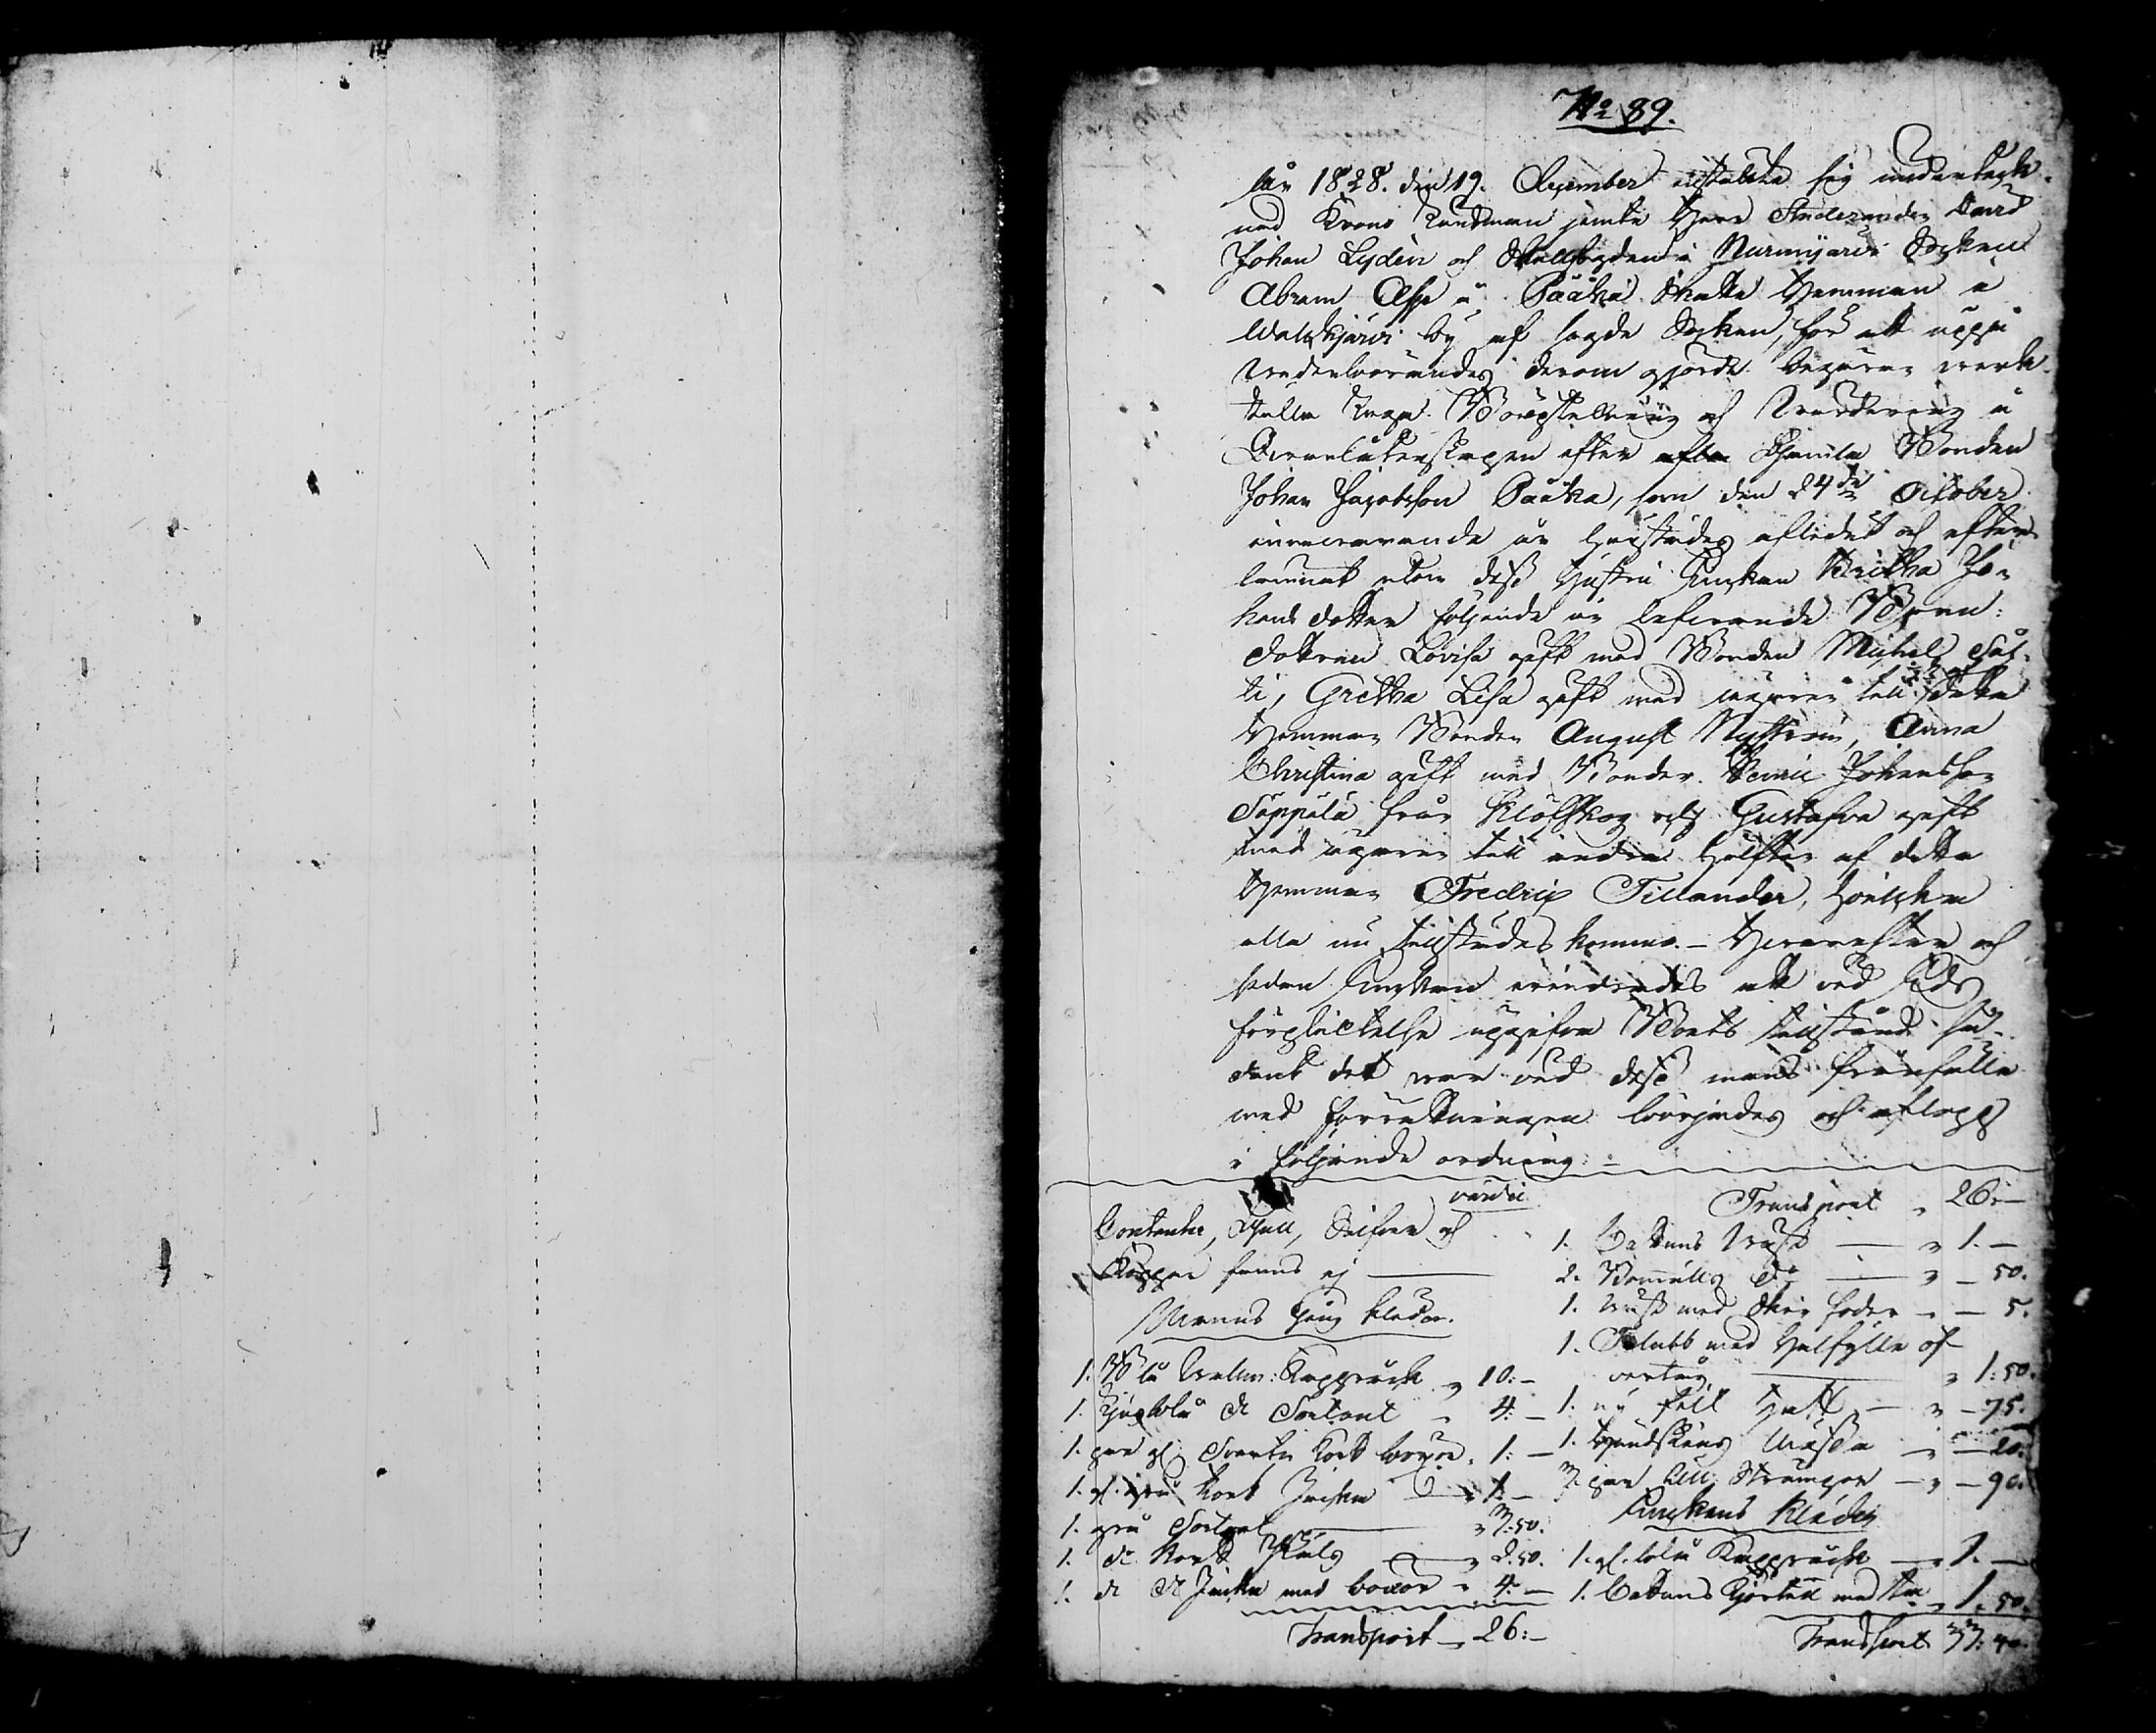 No 89.
År 1828. den 19. December instälte sig underteck-
nad Krono Länsman jemte Herr Studeranden David
Johan Lydén och Skallfogden i Nurmijärvi Socken
Abram å Pääkä Skatte Hemman i
by af sagde Socken, för att uppå
vederbörandes derom gjorde begäran verk-
ställa Laga Bouptekning och Värdering å
Qvarlåtenskapen efter aflidne Bonden
Johan Jacobsson Pääkä, som den 24de October
innevarande år härstädes aflidit och efter-
lemnat utom dess Hustru Enkan Britha Jo-
hansdotter följande nu lefvande Barn:
dottren Lovisa gift med Bonden Michel
ti, Gretha Lisa gift med ägaren till detta
Hemman Bonden August Nyström, Anna
Christina gift med Bonden Henric Johansson
Seppälä från Klöfskog och Gustafva gift
med ägaren till andra Hälften af detta
Hemman Fredric Tillander, hvilka
alla nu tillstädes komne. – Härefter och
sedan Enkan erindrades att vid Eds
förplictelse uppgifva Boets tillstånd så-
dant det var vid dess mans frånfälle
med förrättningen börjades och aflopp
i följande ordning: –
värde
Contanter, Gull, Silfver och
Koppar fanns ej —
Mannens Gång kläder.
1. Blå Vallm: Kapprock „ 10: –
1. Ljusblå do Sortout „ 4: –
1. par gl. Svarta Kort boxor „ 1: –
1. gl. grå Kort Jacka „ 1: –
1. grå Sortout „ 3: 50.
1. do Kort „ 2. 50.
1. do do Jacka med boxor „ 4: –
Transport „ 26: –
Transport „ 26: –
1. Cattuns Väst „ 1. –
2. Bomulls do „ – 50.
1. Väst med Skin foder „ – 5.
1. med Halfylle öf-
vertyg „ 1: 50.
1. ny filt Hatt „ – 75.
1. Hundskins Mössa „ – 20.
3. par Ull Strumpor „ – 90.
Enkans Kläder
1. gl. blå Kapprock „ 1. –
1. Cattuns Kjortel med „ 1. 50.
Transport 33: 40.